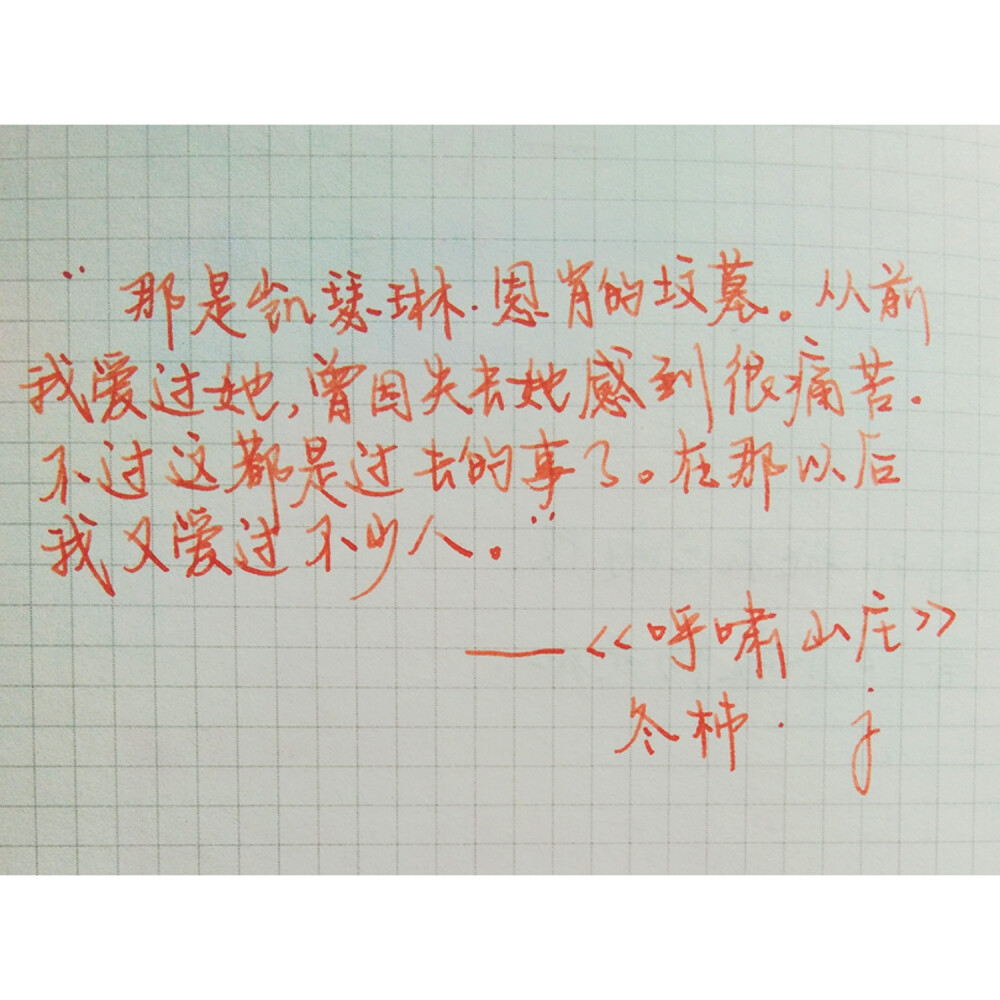 "那是凯瑟琳·恩肖的坟墓。从前
我爱过她,曾因失去她感到很痛苦.
不过这都是过去的事了。在那以后
我又爱过不少人。"
——《呼啸山庄》
冬柿· j